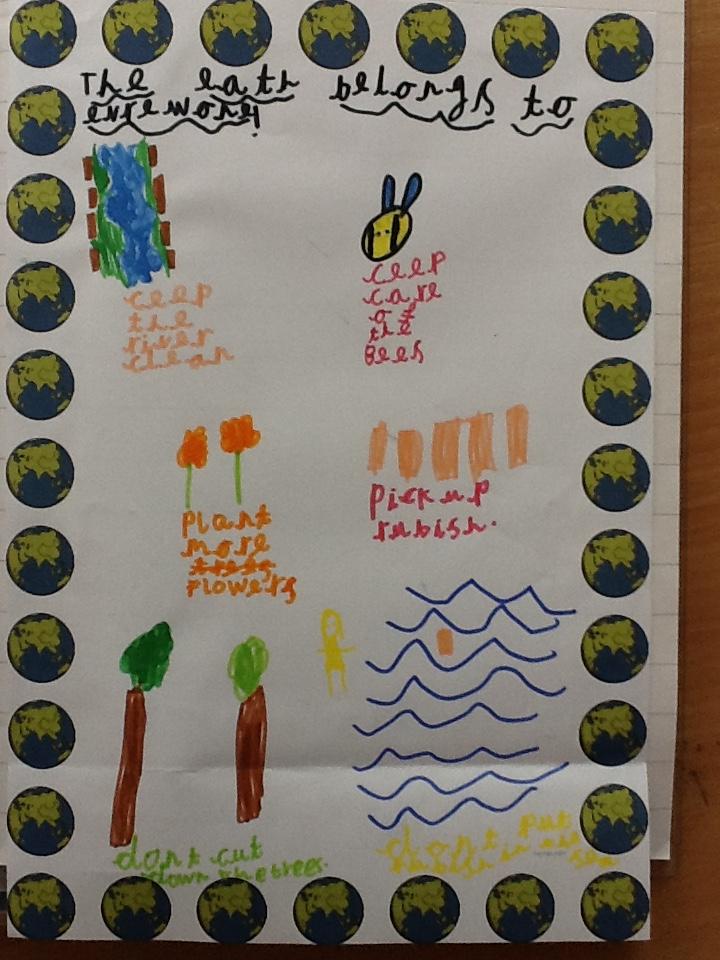 The eath belongs to
evrewone!
ceep
the
river
clean
ceep
care
of
the
Bees
Plant
more
trees
Flowers
Pick up
rubish.
dont cut
down the trees.
dont put
rubish in the
sea